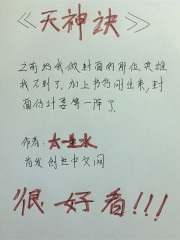 《天神诀》
之前给我做封面的那位英雄
找不到了，加上书刚刚出来，封
面估计要等一阵了。
作者：太一生水
首发创世中文网
很好看!!!